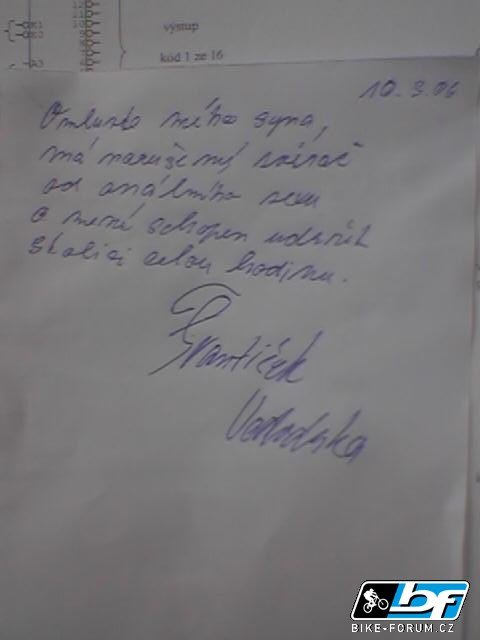 výstup
kód 1 ze 16
10.3.06
Omluvte mého syna,
má narušený svěrač
od análního sexu
a není schopen udržet
stolici celou hodinu.
František
bf
BIKE-FORUM.CZ